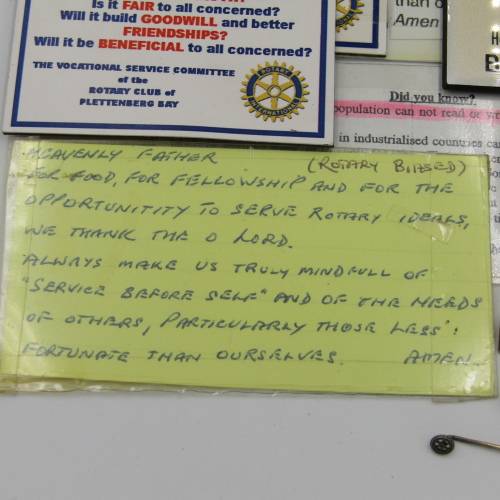 Is it FAIR to all concerned?
Will it build GOODWILL and better
FRIENDSHIPS?
Will it be BENEFICIAL to all concerned?
THE VOCATIONAL SERVICE COMMITTEE
of the
ROTARY CLUB of
PLETTENBERG BAY
ROTARY
INTERNATIONAL
than o
Amen
Did you know?
population can not read or wr
in industrialised countries ca
HEAVENLY FATHER (ROTARY BIASED)
FOR FOOD, FOR FELLOWSHIP AND FOR THE
OPPORTUNITITY TO SERVE ROTARY IDEALS,
WE THANK THE O LORD.
ALWAYS MAKE US TRULY MINDFULL OF
"SERVICE BEFORE SELF" AND OF THE NEEDS
OF OTHERS, PARTICULARLY THOSE LESS
FORTUNATE THAN OURSELVES. AMEN.